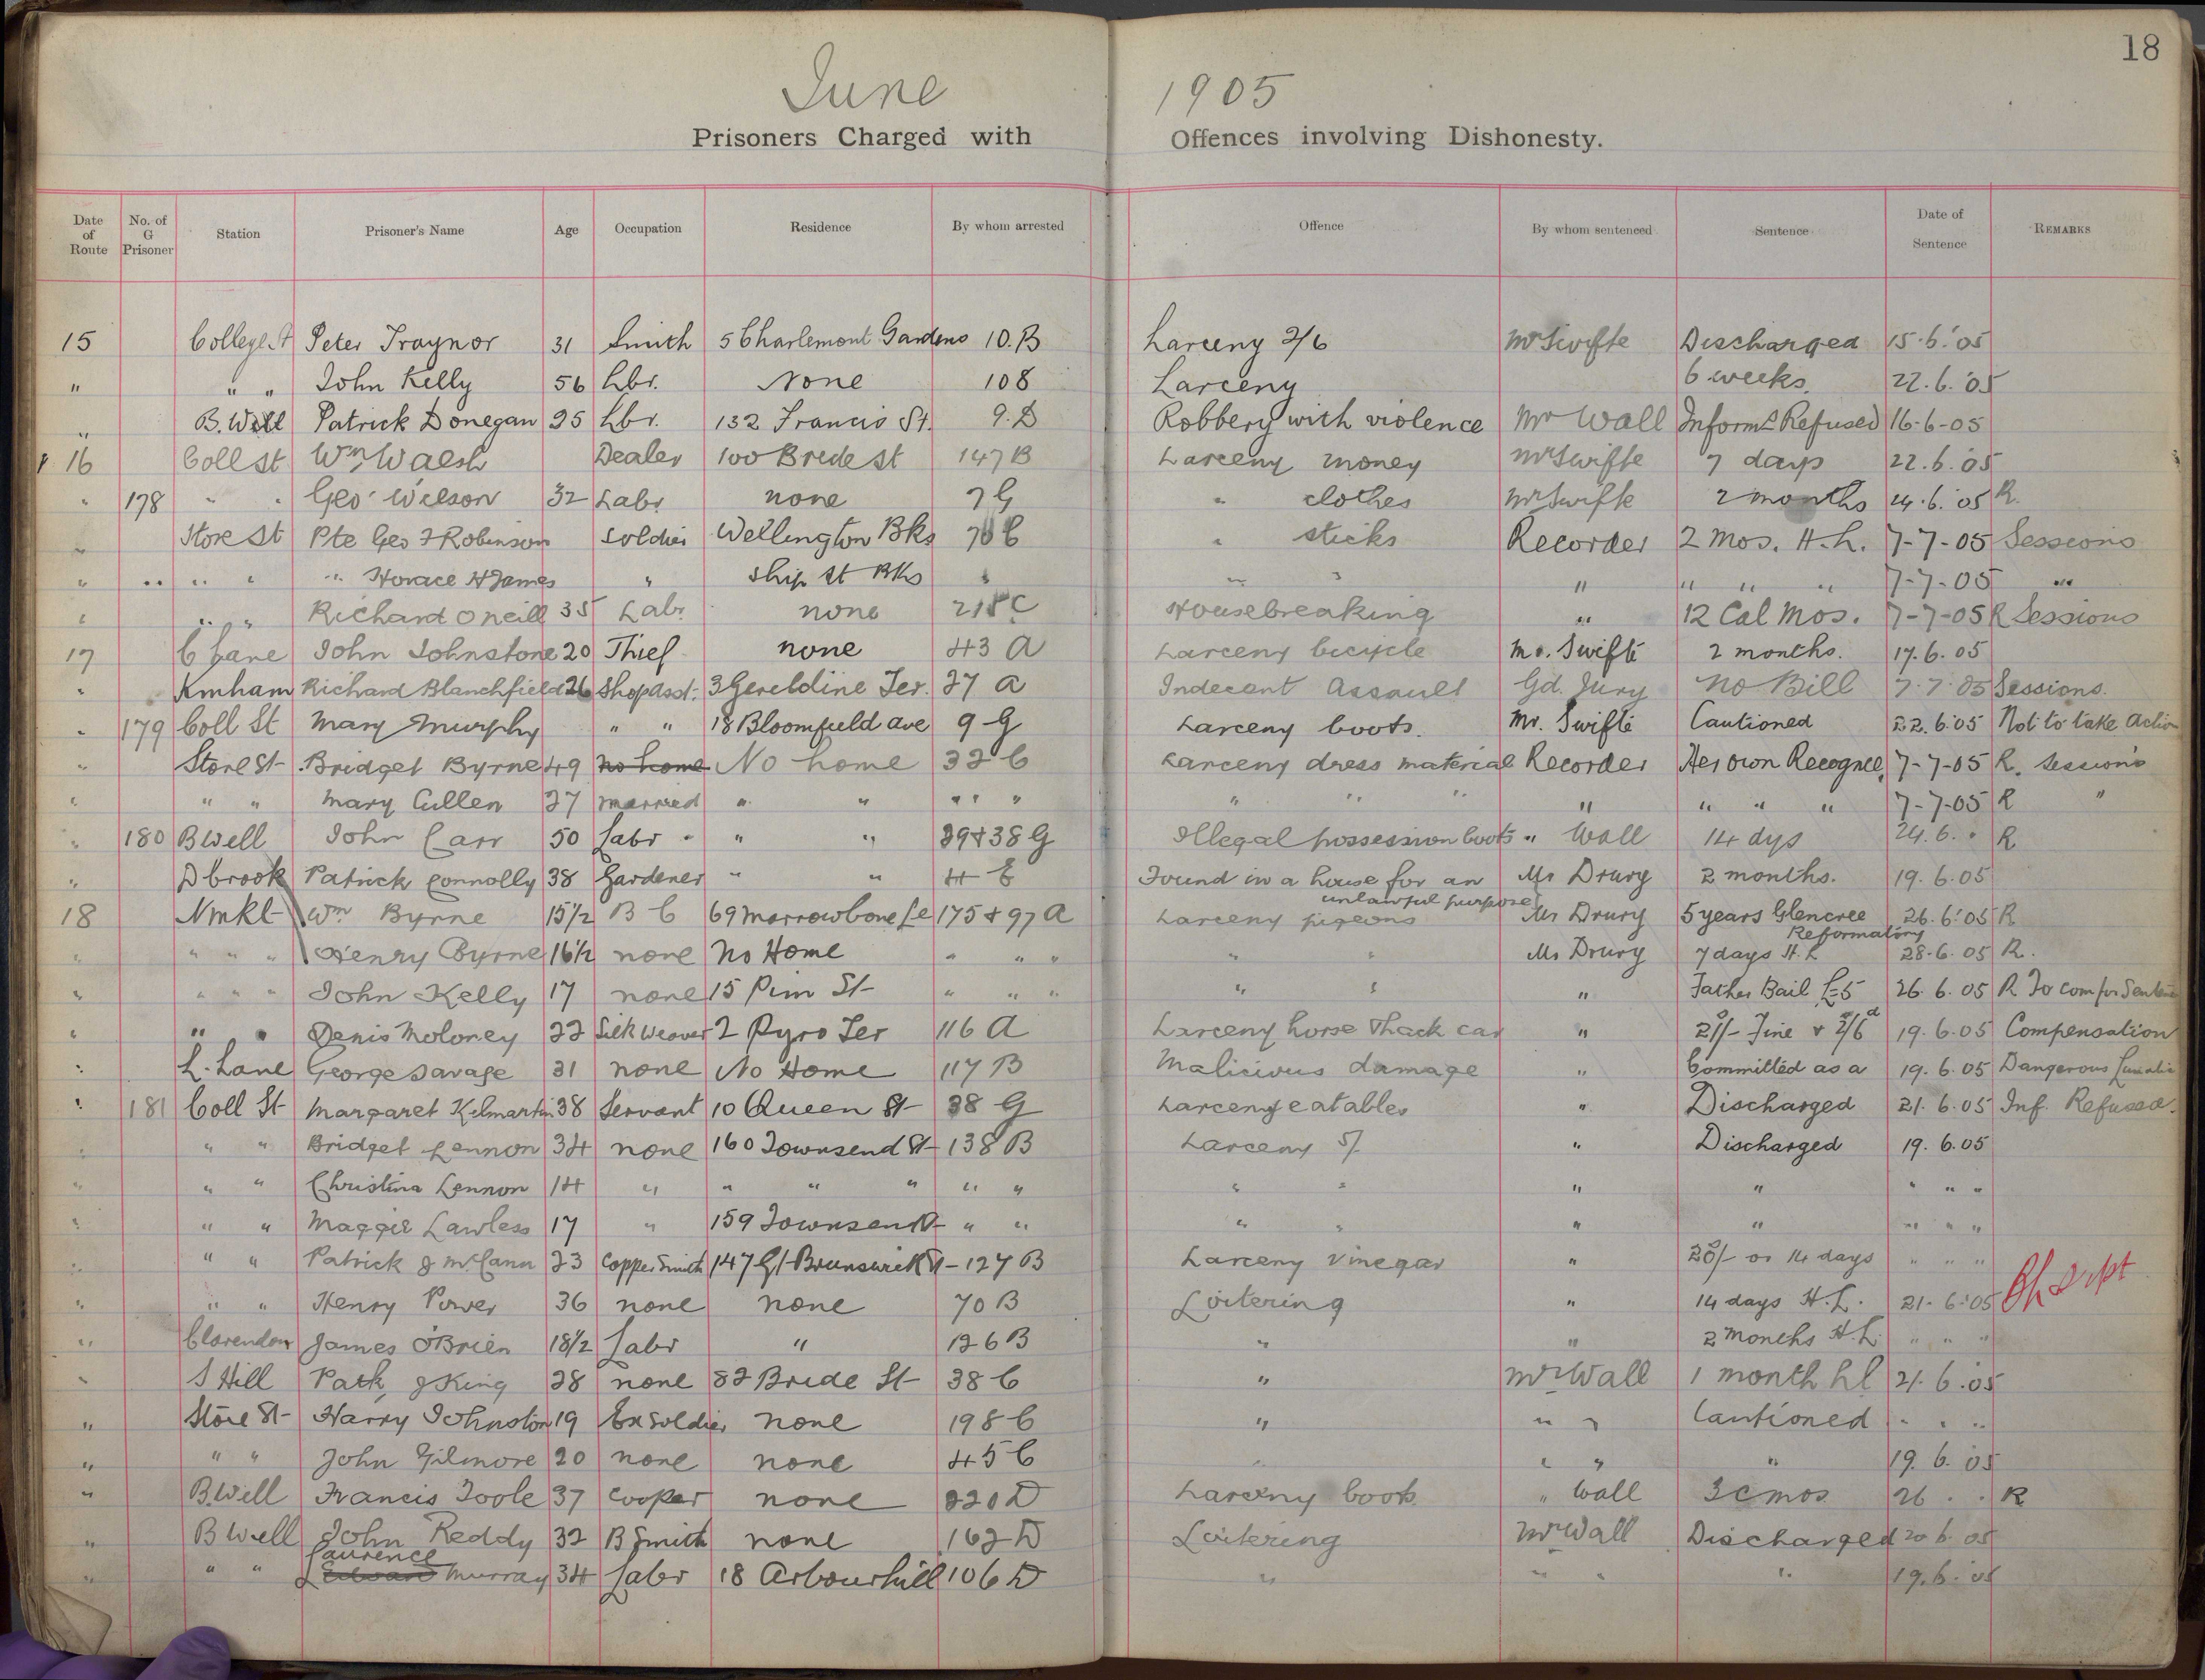 18
June 1905
Prisoners Charged with Offences involving Dishonesty.
Date of Route | No. of G Prisoner | Station | Prisoner's Name | Age | Occupation | Residence | By whom arrested | Offence | By whom sentenced | Sentence | Date of Sentence | REMARKS
15 College St Peter Traynor 31 Smith 5 Charlemont Gardens 10.B Larceny 2/6 Mr Swifte Discharged 15.6.'05
" " " John Kelly 56 Lbr. None 108 Larceny 6 weeks 22.6.'05
" B.Well Patrick Donegan 25 Lbr. 132 Francis St. 9.D Robbery with violence Mr Wall Informs Refused 16-6-05
16 Coll St Wm Walsh Dealer 100 Bride St 147 B Larceny money Mr Swifte 7 days 22.6.'05
" 178 " " Geo. Wilson 32 Labr none 7 G " clothes Mr Swifte 2 months 24.6.'05 R.
" Store St Pte Geo F Robinson Soldier Wellington Bks C " sticks Recorder 2 Mos. H.L. 7-7-05 Sessions
" " " " " " Horace H James " Ship St Bks " " " " " " " 7-7-05 "
" " " Richard O'Neill 35 Labr. none 218 C Housebreaking " 12 Cal Mos. 7-7-05 R Sessions
17 C Lane John Johnstone 20 Thief none 43 A Larceny bicycle Mr. Swifte 2 months. 17.6.05
" Kmham Richard Blanchfield 26 Shop Asst. 3 Gereldine Ter. 27 A Indecent Assault Gd. Jury No Bill 7.7.05 Sessions.
" 179 Coll St Mary Murphy " " 18 Bloomfield Ave 9 G Larceny boots. Mr. Swifte Cautioned 22.6.'05 Not to take Action
" Store St Bridget Byrne 49 no home No home 32 C Larceny dress material Recorder Her own Recognce 7-7-05 R. Sessions
" " " Mary Cullen 27 married " " " " " " " " " " " " 7-7-05 R "
" 180 B Well John Carr 50 Labr " " " 29 & 38 G Illegal possession boots " Wall 14 dys 24.6. " R
" D brook Patrick Connolly 38 Gardener " " 4 E Found in a house for an Mr Drury 2 months. 19.6.05
unlawful purpose
18 Nmkt Wm Byrne 15½ B C 69 Marrowbone Le 175 & 97 A Larceny pigeons Mr Drury 5 years Glencree 26.6.'05 R
Reformatory
" " " " Henry Byrne 16½ none No Home " " " " " Mr Drury 7 days H.L 28.6.05 R.
" " " " John Kelly 17 none 15 Pim St " " " " " " Father Bail £5 26.6.05 R To com for Sentence
" " " Denis Moloney 22 Silk Weaver 2 Pyro Ter 116 A Larceny horse & hack car " 21/- Fine & 2/6 19.6.05 Compensation
" L. Lane George Savage 31 none No Home 117 B Malicious damage " Committed as a 19.6.05 Dangerous Lunatic
" 181 Coll St Margaret Kilmartin 38 Servant 10 Queen St 38 G Larceny eatables " Discharged 21.6.05 Inf. Refused.
" " " Bridget Lennon 34 none 160 Townsend St 138 B Larceny 5/- " Discharged 19.6.05
" " " Christina Lennon 14 " " " " " " " " " " " " "
" " " Maggie Lawless 17 " 159 Townsend St " " " " " " " " "
" " " Patrick J McCann 23 Copper Smith 147 Gt Brunswick St 127 B Larceny vinegar " 20/- or 14 days " " "
" " " Henry Power 36 none none 70 B Loitering " 14 days H.L. 21.6.'05
" Clarendon James O'Brien 18½ Labr " 126 B " " 2 Months H.L. " " "
" S Hill Patk J King 28 none 82 Bride St 38 C " Mr Wall 1 month hl 21.6.'05
" Store St Harry Johnston 19 Ex Soldier none 198 C " " " Cautioned " " "
" " " John Gilmore 20 none none 45 C " " " " 19.6.'05
" B.Well Francis Toole 37 Cooper none 220 D Larceny boots " Wall 3 c mos 26 " " R
" B Well John Reddy 32 B Smith none 162 D Loitering Mr Wall Discharged 20.6.05
" " " Laurence Edward Murray 34 Labr 18 Arbourhill 106 D " " " " 19.6.'05